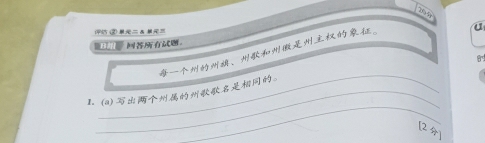 20分
评估 2 单元二 & 单元三
B组 回答所有试题。
每一个州的州旗、州歌和州徽是州主权的象征。
1. (a) 写出两个州属的州歌歌名是相同的。
[2 分]